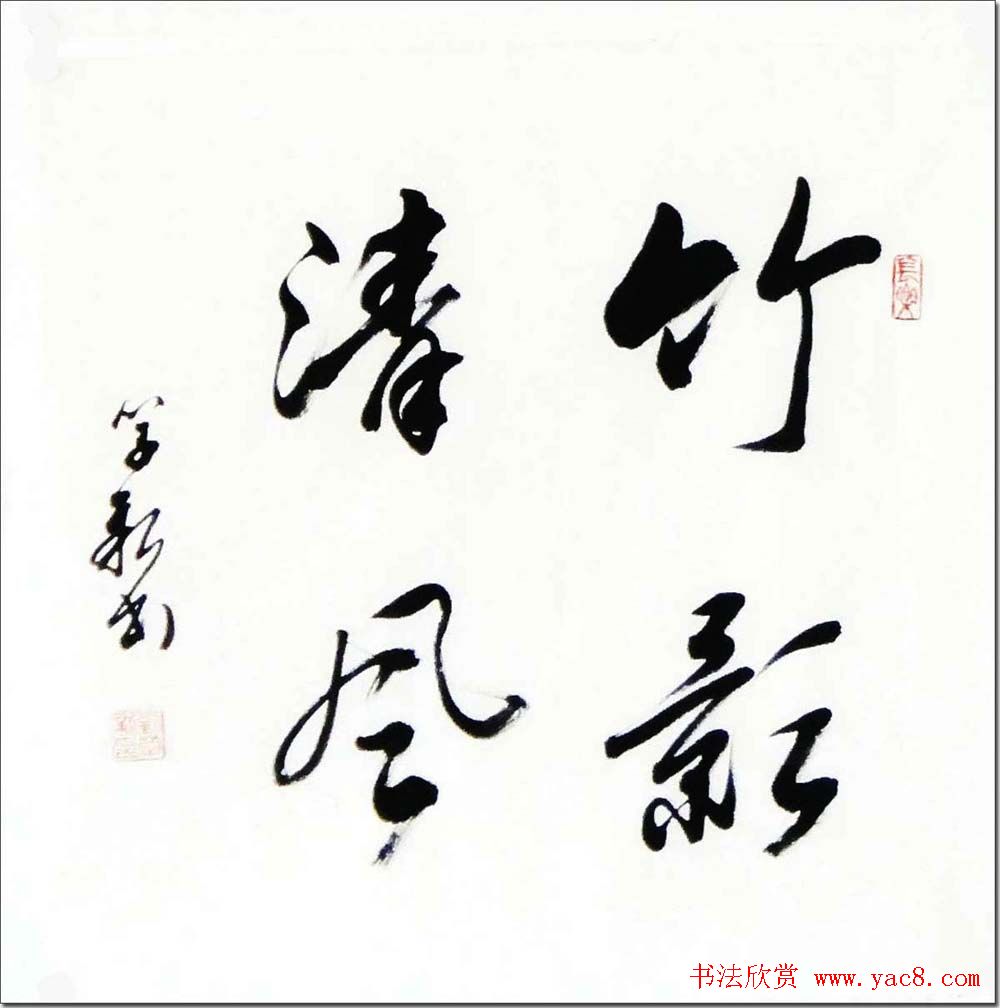 竹影
清风
学新书
長樂
书法欣赏 www.yac8.com